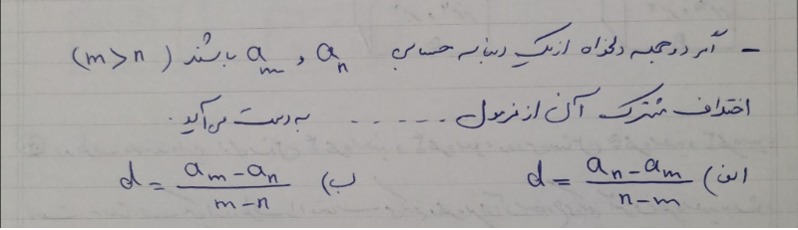 - اگر دو جمله دلخواه از یک دنباله حسابی aₙ و aₘ باشند (m>n)
اختلاف مشترک آن از فرمول ...... به دست می‌آید.
الف) d = (aₙ - aₘ)/(n - m) ب) d = (aₘ - aₙ)/(m - n)